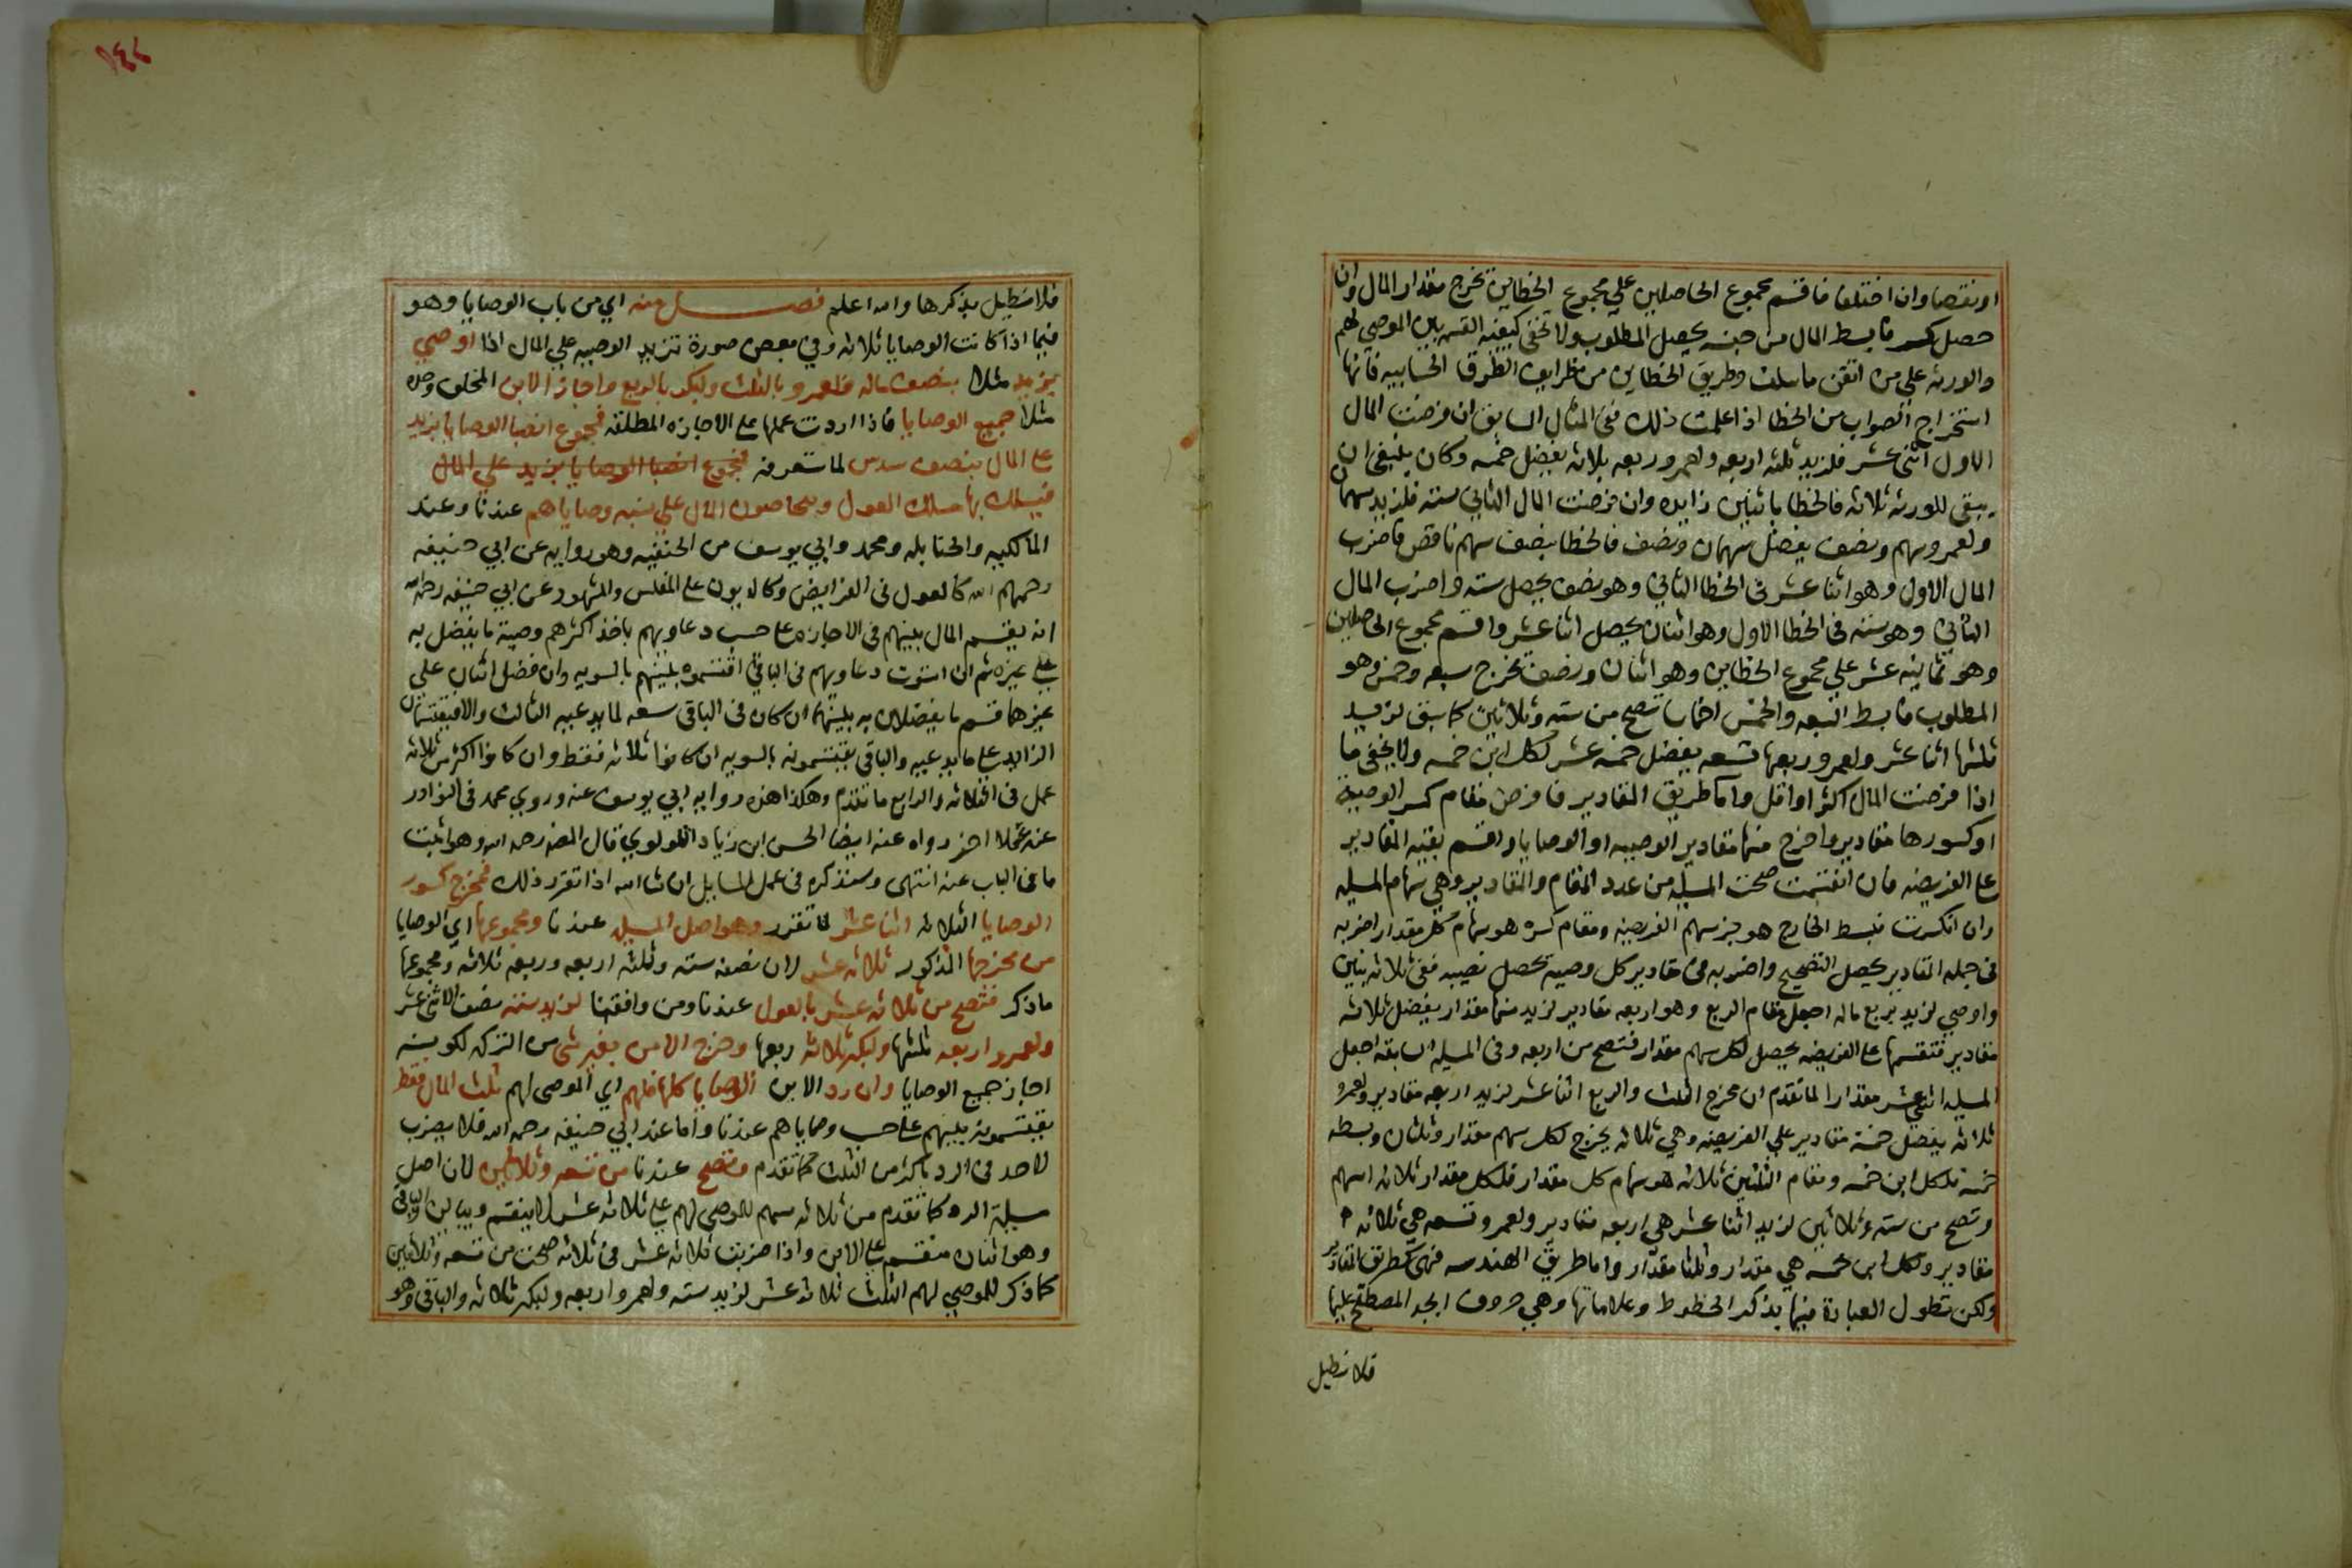 او نقصا وان اختلفا فاقسم مجموع الحاصلين علي مجموع الخطاين تخرج مقدار المال وان
حصل كسر فابسط المال من جنسه يحصل المطلوب ولا تخفى كيفيه القسمه بين الموصي لهم
والورثه علي من اتقن ما سلف وطريق الخطاين من ظرايف الطرق الحسابيه فانها
استخراج الصواب من الخطا اذا علمت ذلك ففي المثال السابق ان فرضت المال
الاول اثني عشر فلزيد ثلثه اربعه ولعمرو ربعه ثلاثه يفضل خمسه وكان ينبغي ان
يبقى للورثه ثلاثه فالخطا باثنين زايده وان فرضت المال الثاني سته فلزيد سهمان
ولعمرو سهم ونصف يفضل سهمان ونصف فالخطا بنصف سهم ناقص فاضرب
المال الاول وهو اثنا عشر في الخطا الثاني وهو نصف يحصل سته واضرب المال
الثاني وهو سته في الخطا الاول وهو اثنان يحصل اثنا عشر واقسم مجموع الحاصلين
وهو ثمانيه عشر علي مجموع الخطاين وهو اثنان ونصف تخرج سبعه وخمس وهو
المطلوب فابسط السبعه والخمس اخماسا تصح من سته وثلاثين كما سبق لزيد
ثلثها اثنا عشر ولعمرو ربعها تسعه يفضل خمسه عشر لكل ابن خمسه ولا يخفى ما
اذا فرضت المال اكثر او اقل واما طريق المقادير فافرض مقام كسر الوصيه
او كسورها مقادير واخرج منها مقادير الوصيه او الوصايا واقسم بقيه المقادير
على الفريضه فان انقسمت صحت المسيله من عدد المقام والمقادير وهي سهام المسيله
وان انكسرت فبسط الخارج هو جز سهم الفريضه ومقام كسره هو سهام كل مقدار اضربه
في جمله المقادير يحصل التصحيح واضربه في مقادير كل وصيه تحصل نصيبه ففي ثلاثه بنين
واوصي لزيد بربع ماله اجعل مقام الربع وهو اربعه مقادير لزيد منها مقدار يفضل ثلاثه
مقادير فتقسمها على الفريضه يحصل لكل سهم مقدار فتصح من اربعه وفي المسيله السابقه اجعل
المسيله اثني عشر مقدارا لما تقدم ان مخرج الثلث والربع اثنا عشر لزيد اربعه مقادير ولعمرو
ثلاثه يفضل خمسة مقادير علي الفريضه وهي ثلاثه يخرج لكل سهم مقدار وثلثان وبسطه
خمسة فلكل ابن خمسه ومقام الثلثين ثلاثه هو سهام كل مقدار فلكل مقدار ثلاثه اسهم
وتصح من سته وثلاثين لزيد اثنا عشر هي اربعه مقادير ولعمرو تسعه هي ثلاثه
مقادير ولكل ابن خمسه هي مقدار وثلثا مقدار واما طريق الهندسه فهي كطريق المقادير
ولكن تطول العبارة فيها بذكر الخطوط وعلاماتها وهي حروف ابجد المصطلح عليها
فلا نطيل
فلا نطيل بذكرها والله اعلم فصل منه اي من باب الوصايا وهو
فيما اذا كانت الوصايا ثلاثه وفي بعض صورة تزيد الوصيه علي المال اذا اوصي
لزيد مثلا بنصف ماله ولعمرو بالثلث ولبكر بالربع واجاز الابن المخلف وحده
مثلا جميع الوصايا فاذا اردت عملها على الاجازه المطلقه فمجموع انصبا الوصايا يزيد
على المال بنصف سدس لما ستعرفه فمجموع انصبا الوصايا يزيد علي المال
فيسلك بها مسلك العول ويتحاصون المال علي نسبه وصاياهم عندنا وعند
المالكيه والحنابله ومحمد وابي يوسف من الحنفيه وهو روايه عن ابي حنيفه
رحمهم الله كالعول في الفرايض وكالديون على المفلس والمشهور عن ابي حنيفه رحمه الله
انه يقسم المال بينهم في الاجازه على حسب دعاويهم ياخذ اكثرهم وصية ما يفضل به
على غيره ثم ان استوت دعاويهم في الباقي اقتسموه بينهم بالسويه وان فضل اثنان علي
غيرهما قسم ما يفضلان به بينهما ان كان في الباقي سعه لما يدعيه الثالث والا فيقتسمان
الزايد على ما يدعيه والباقي يقتسمونه بالسويه ان كانوا ثلاثه فقط وان كانوا اكثر من ثلاثه
عمل في الثلاثه والرابع ما تقدم وهكذا هذه روايه ابي يوسف عنه وروي محمد في النوادر
عنه عملا اخر رواه عنه ايضا الحسن ابن زياد اللولوي قال المص رحمه الله وهو اثبت
ما في الباب عنه انتهى وسنذكره في عمل المسايل ان شا الله اذا تقرر ذلك فمخرج كسور
الوصايا الثلاثه اثنا عشر لما تقرر وهو اصل المسيله عندنا ومجموعها اي الوصايا
من مخرجها المذكور ثلاثه عشر لان نصفه سته وثلثه اربعه وربعه ثلاثه ومجموعها
ماذكر فتصح من ثلاثه عشر بالعول عندنا ومن وافقنا لزيد سته نصف الاثني عشر
ولعمرو اربعه ثلثها ولبكر ثلاثه ربعها وخرج الابن بغير شي من التركه لكونه
اجاز جميع الوصايا وان رد الابن الوصايا كلها فلهم اي الموصى لهم ثلث المال فقط
يقتسمونه بينهم على حسب وصاياهم عندنا واما عند ابي حنيفه رحمه الله فلا يضرب
لاحد في الرد باكثر من الثلث كما تقدم وتصح عندنا من تسعه وثلاثين لان اصل
مسيلة الرد كما تقدم من ثلاثه سهم للموصى لهم على ثلاثه عشر لا ينقسم ويباين والباقي
وهو اثنان منقسم على الابن واذا ضربت ثلاثه عشر في ثلاثه صحت من تسعه وثلاثين
كما ذكر للموصي لهم الثلث ثلاثه عشر لزيد سته ولعمرو اربعه ولبكر ثلاثه والباقي وهو